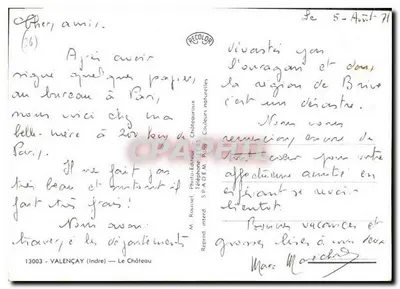 Le 5 - Août 71
Chers amis,
(36)
Après avoir
signé quelques papiers
au bureau à Paris,
nous voici chez ma
belle-mère à 200 km de
Paris.
Il ne fait pas
très beau et surtout il
fait très frais!
Nous avons
traversé les départements
13003 - VALENÇAY (Indre) — Le Château
RECOLOR
M. Roussel Photo-Éditeur Châteauroux
Téléphone
Reprod. interd. SPADEM Paris Couleurs naturelles
CPAPHIL.COM
dévastés par
l'ouragan et dans
la région de Brive
c'est un désastre.
Nous vous
remercions encore de
tout cœur pour votre
affectueuse amitié en
espérant se revoir
bientôt
Bonnes vacances et
grosses bises à vous deux
Marc